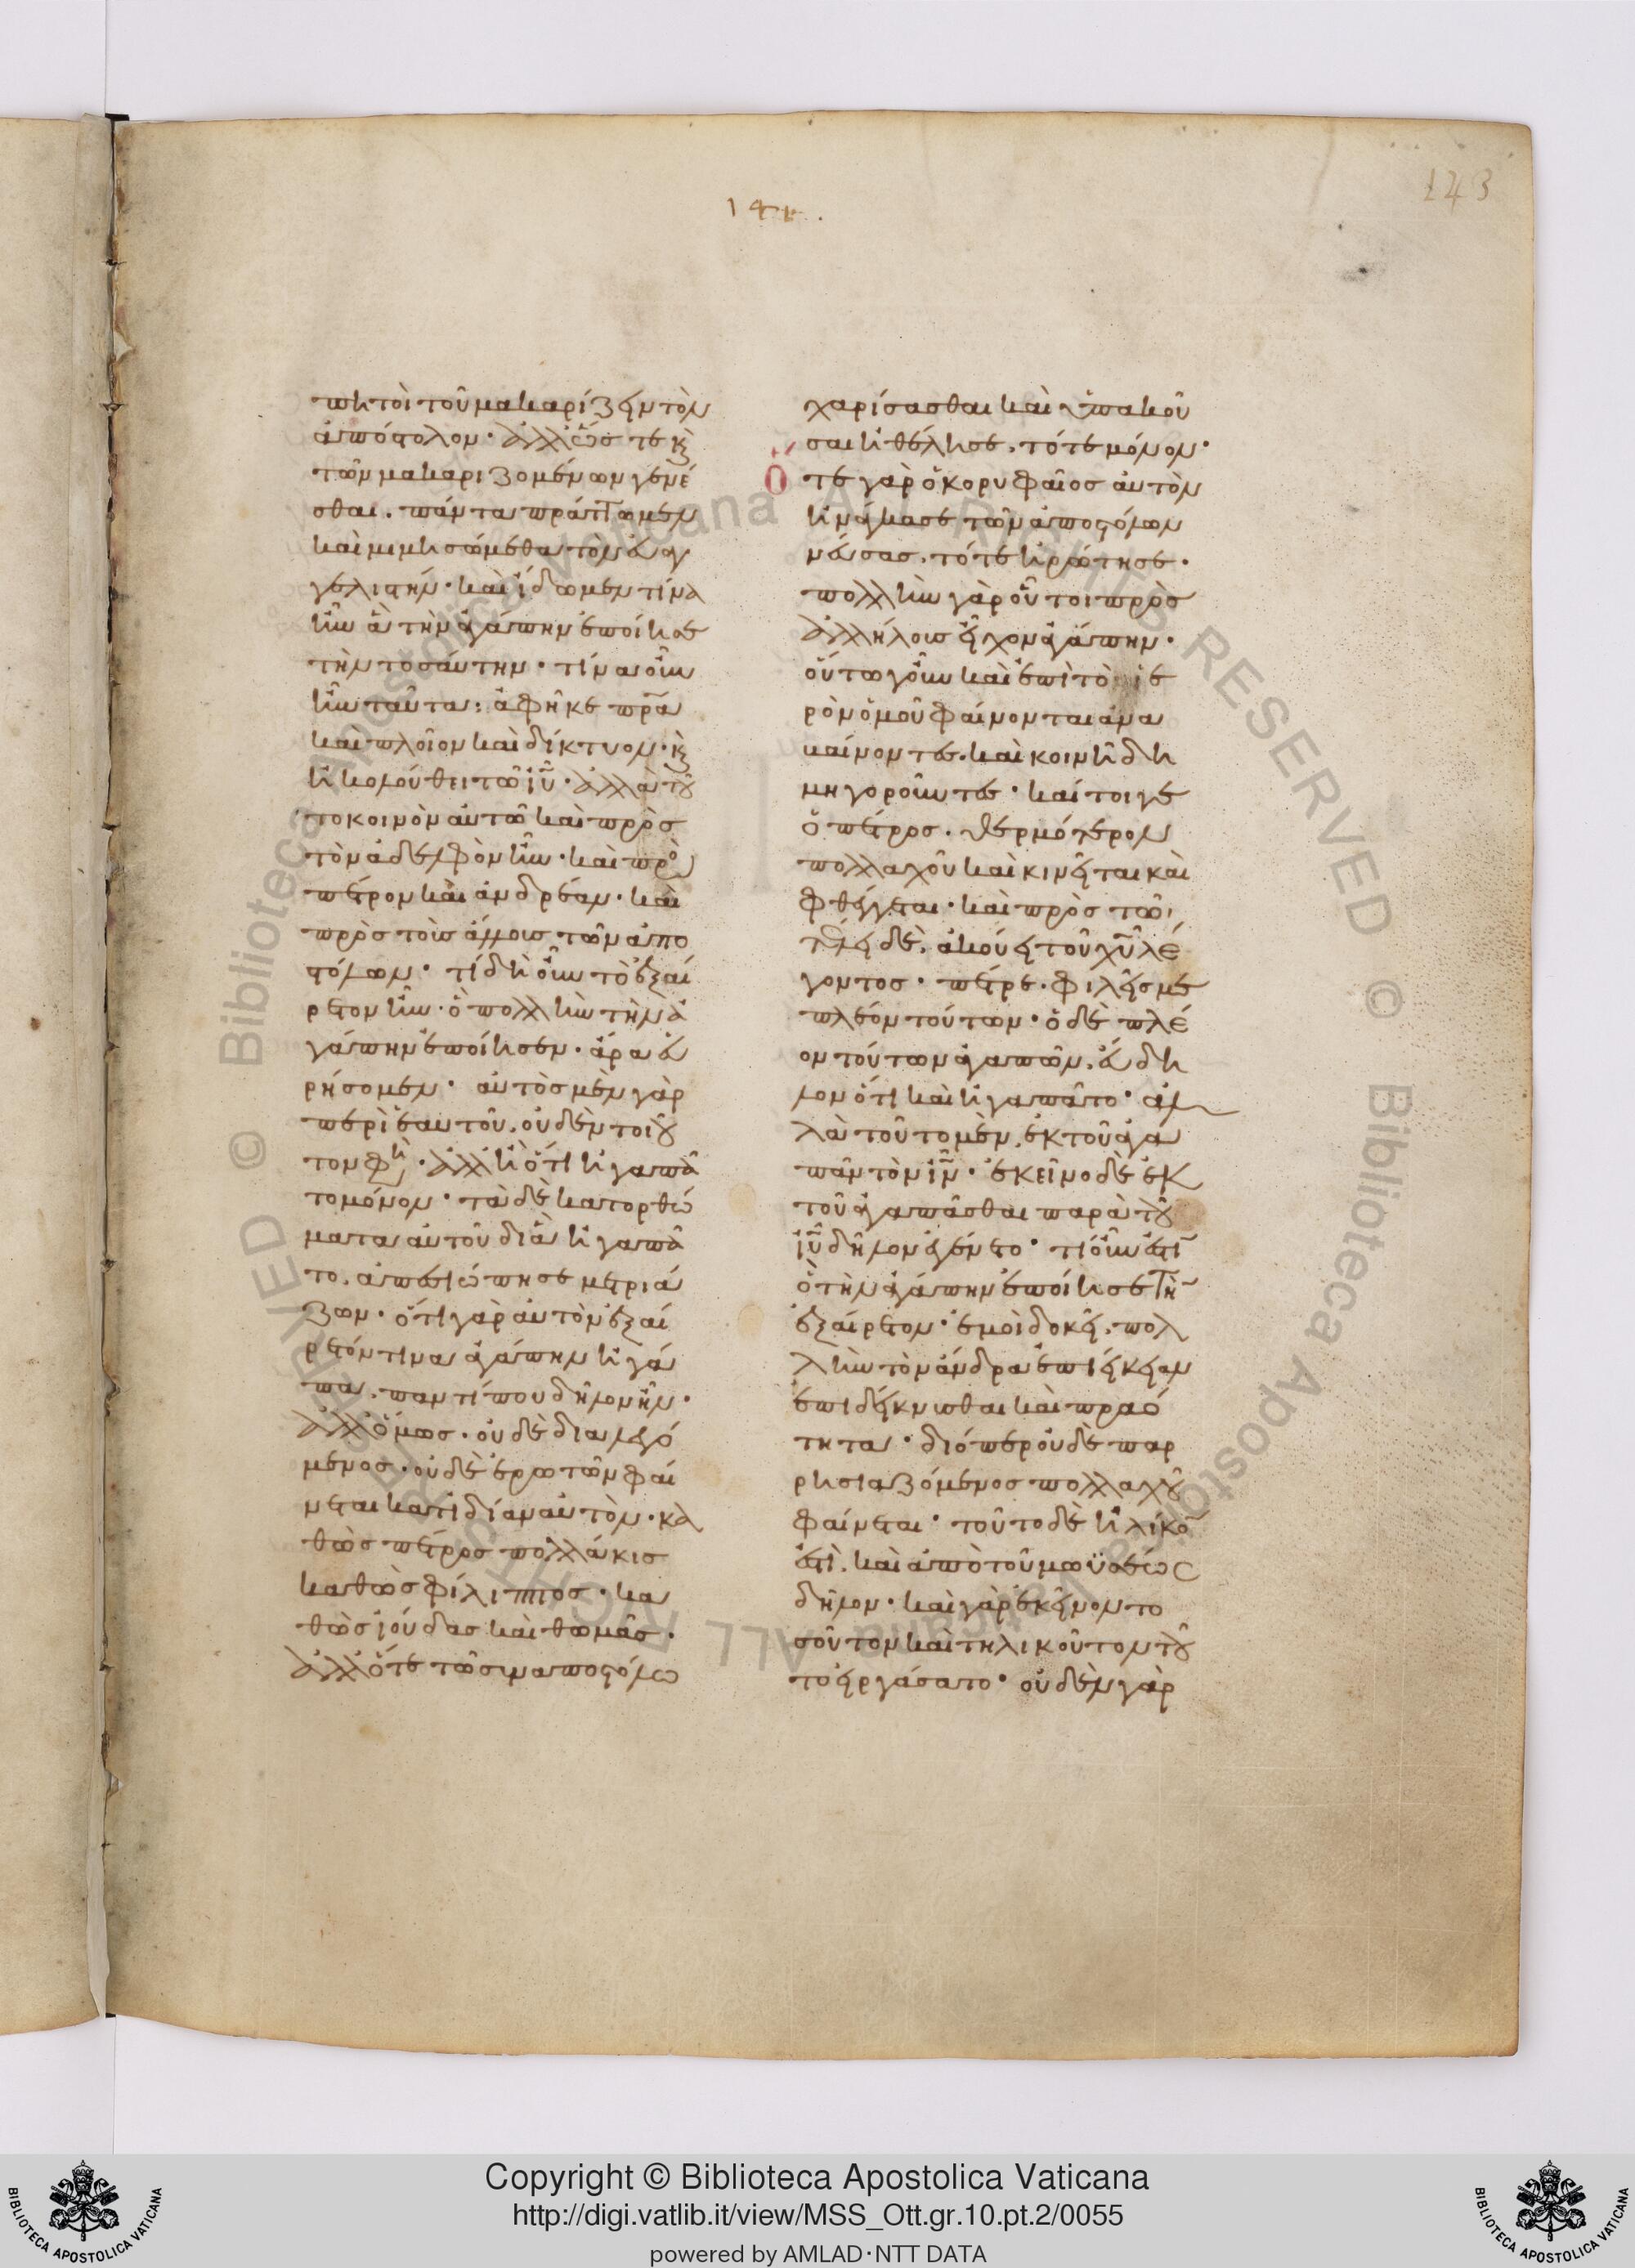 143
143.
πη τοι τοῦ μακαρίζειν τὸν
ἀπόστολον· ἀλλ' ὥστε κ(αὶ)
τῶν μακαριζομένων γενέ
σθαι. πάντα πράττωμεν
καὶ μιμησώμεθα τὸν εὐαγ
γελιστήν· καὶ ἴδωμεν τίνα
ἦν ἃ τὴν ἀγάπην ἐποίησε
τὴν τοσαύτην· τίνα οὖν
ἦν ταῦτα; ἀφῆκε πρα
καὶ πλοῖον καὶ δίκτυον· κ(αὶ)
ἠκολούθει τῶ ἰυ· ἀλλὰ τοῦ
το κοινὸν αὐτῶ καὶ πρὸς
τὸν ἀδελφὸν ἦν· καὶ πρὸ(ς)
πέτρον καὶ ἀνδρέαν· καὶ
πρὸς τοὺς ἄλλους τῶν ἀπο
στόλων· τί δὴ οὖν τὸ ἐξαί
ρετον ἦν· ὃ πολλὴν τὴν ἀ
γάπην ἐποίησεν· ἆρα εὑ
ρήσομεν· αὐτὸς μὲν γὰρ
περὶ ἑαυτοῦ, οὐδὲν τοιοῦ
τον φη· ἀλλ' ἢ ὅτι ἠγαπᾶ
το μόνον· τὰ δὲ κατορθώ
ματα αὐτοῦ δι' ἃ ἠγαπᾶ
το, ἀπεσιώπησε μετριά
ζων· ὅτι γὰρ αὐτὸν ἐξαί
ρετόν τινα ἀγάπην ἠγά
πα, παντί που δῆλον ἦν·
ἀλλ' ὅμως· οὐδὲ διαλεγό
μενος· οὐδὲ ἐρωτῶν φαί
νεται κατιδίαν αὐτὸν· κα
θὼς πέτρος πολλάκις
καθὼς φίλιππος· κα
θὼς ἰούδας καὶ θωμᾶς·
ἀλλ' ὅτε τῶ συναποστόλω
χαρίσασθαι καὶ ὑπακοῦ
σαι ἠθέλησε, τότε μόνον·
Ὅτε γὰρ ὁ κορυφαῖος αὐτὸν
ἠνάγκασε τῶν ἀποστόλων
νεύσας, τότε ἠρώτησε·
πολλὴν γὰρ οὗτοι πρὸς
ἀλλήλους εἶχον ἀγάπην·
οὕτω γοῦν καὶ ἐπὶ τὸ ἱε
ρὸν ὁμοῦ φαίνονται ἀνα
βαίνοντες, καὶ κοινῆ δη
μηγοροῦντες· καίτοιγε
ὁ πέτρος, θερμότερον
πολλαχοῦ καὶ κινεῖται καὶ
φθέγγεται· καὶ πρὸς τῶ
τέλει δὲ, ἀκούει τοῦ χυ λέ
γοντος· πέτρε, φιλεῖς με
πλέον τούτων· ὁ δὲ πλέ
ον τούτων ἀγαπῶν, εὔδη
λον ὅτι καὶ ἠγαπᾶτο· ἀλ
λὰ τοῦτο μὲν, ἐκ τοῦ ἀγα
πᾶν τὸν ἰν· ἐκεῖνο δὲ ἐκ
τοῦ ἀγαπᾶσθαι παρὰ τοῦ
ἰυ δῆλον ἐγένετο· τί οὖν ἐστὶ(ν)
ὃ τὴν ἀγάπην ἐποίησε τὴ(ν)
ἐξαίρετον· ἐμοὶ δοκεῖ, πολ
λὴν τὸν ἄνδρα ἐπιείκειαν
ἐπιδείκνυσθαι καὶ πραό
τητα· διόπερ οὐδὲ παρ
ρησιαζόμενος πολλαχοῦ
φαίνεται· τοῦτο δὲ ἡλίκο(ν)
ἐστὶ, καὶ ἀπὸ τοῦ μωϋσέως
δῆλον· καὶ γὰρ ἐκεῖνον το
σοῦτον καὶ τηλικοῦτον τοῦ
το εἰργάσατο· οὐδὲν γὰρ
© Biblioteca Apostolica Vaticana ALL RIGHTS RESERVED
© Biblioteca Apostolica Vaticana ALL RIGHTS RESERVED
Copyright © Biblioteca Apostolica Vaticana
http://digi.vatlib.it/view/MSS_Ott.gr.10.pt.2/0055
powered by AMLAD·NTT DATA
BIBLIOTECA APOSTOLICA VATICANA
BIBLIOTECA APOSTOLICA VATICANA